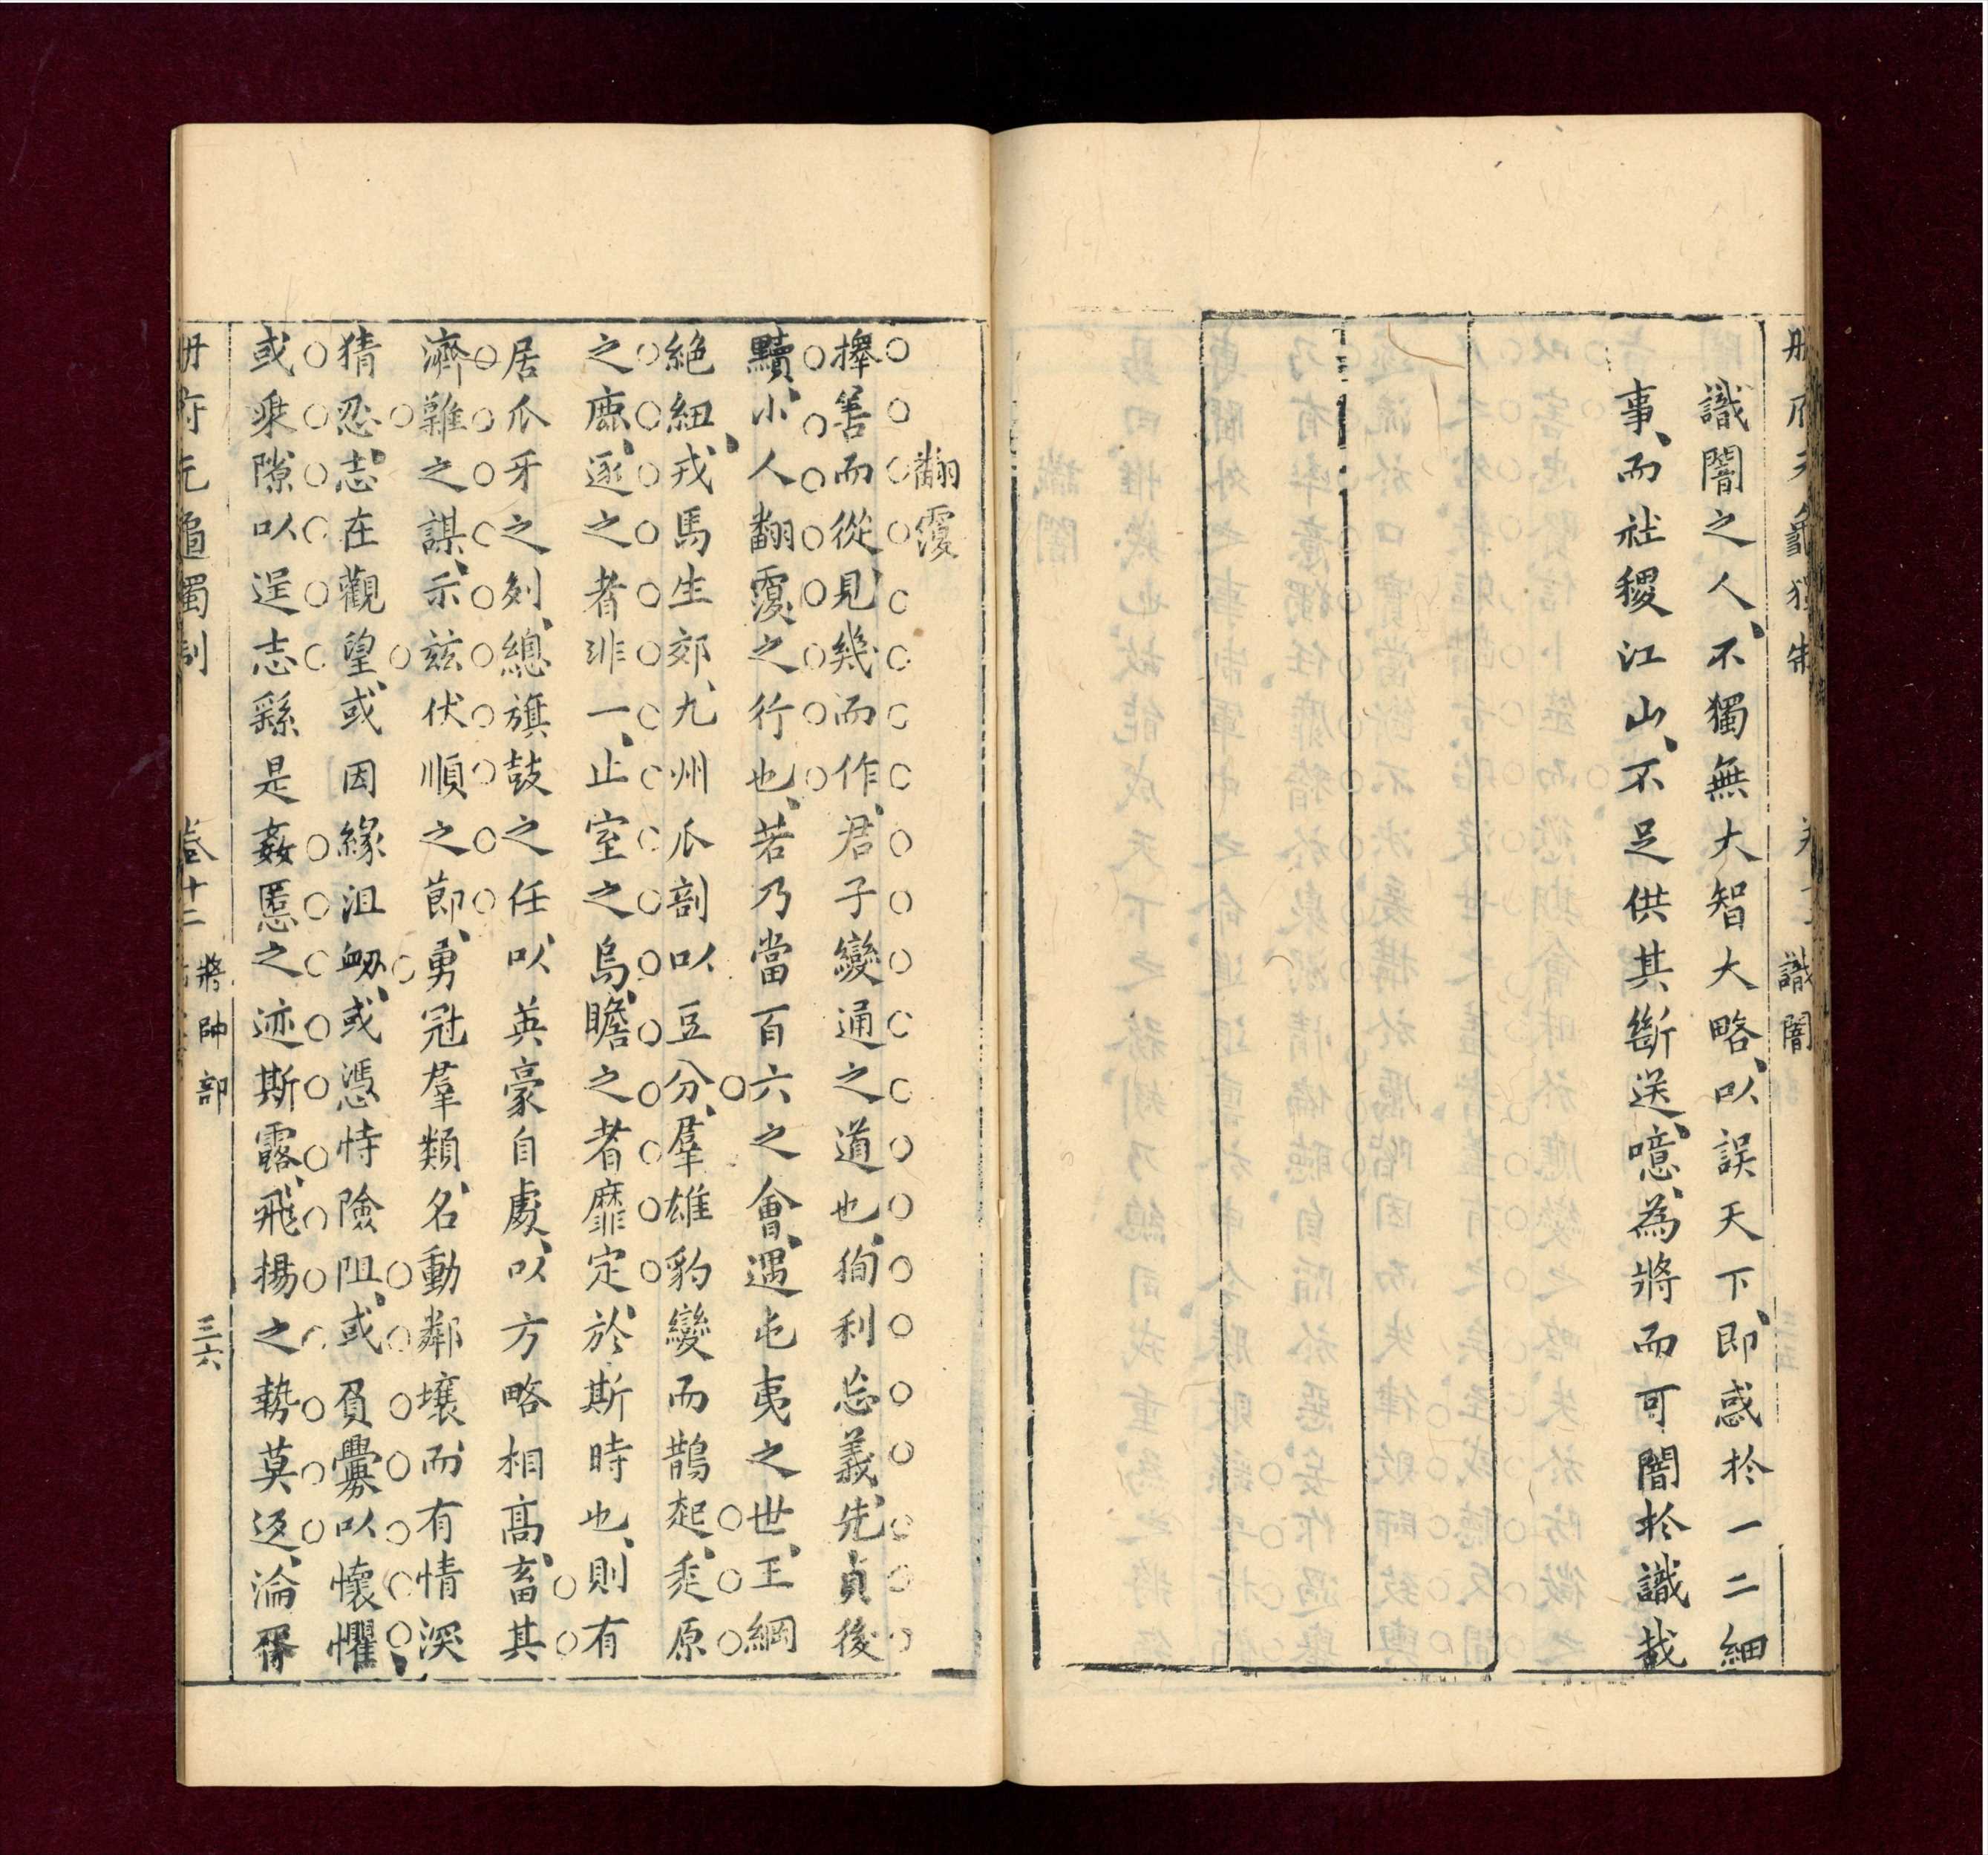 識闇
識闇之人、不獨無大智大略、以誤天下、即惑於一二細
事、而社稷江山、不足供其斷送、噫、為將而可闇於識哉
翻覆
擇善而從、見幾而作、君子變通之道也、徇利忘義、先貞後
黷、小人翻覆之行也、若乃當百六之會、遇屯夷之世、王綱
絶紐、戎馬生郊、九州瓜剖以豆分、羣雄豹變而鵲起、秦原
之鹿、逐之者非一、止室之烏、瞻之者靡定、於斯時也、則有
居爪牙之列、總旗鼓之任、以英豪自處、以方略相高、畜其
濟難之謀、示兹伏順之節、勇冠羣類、名動鄰壤、而有情深
猜忍、志在觀望、或因緣沮衂、或憑恃險阻、或負釁以懷懼、
或乘隙以逞志、繇是姦慝之迹斯露、飛揚之勢莫返、淪胥
冊府元龜獨制 卷十二 將帥部 三六